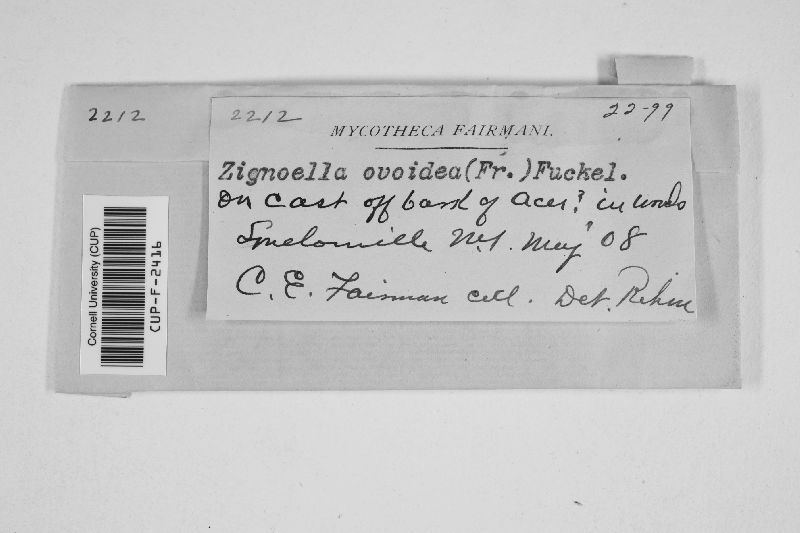 2212
2212
22-99
MYCOTHECA FAIRMANI.
Zignoella ovoidea(Fr.)Fuckel.
On cast off bark of Acer? in woods
Lyndonville N.Y. May 08
C. E. Fairman coll. Det. Rehm
Cornell University (CUP)
CUP-F-2416